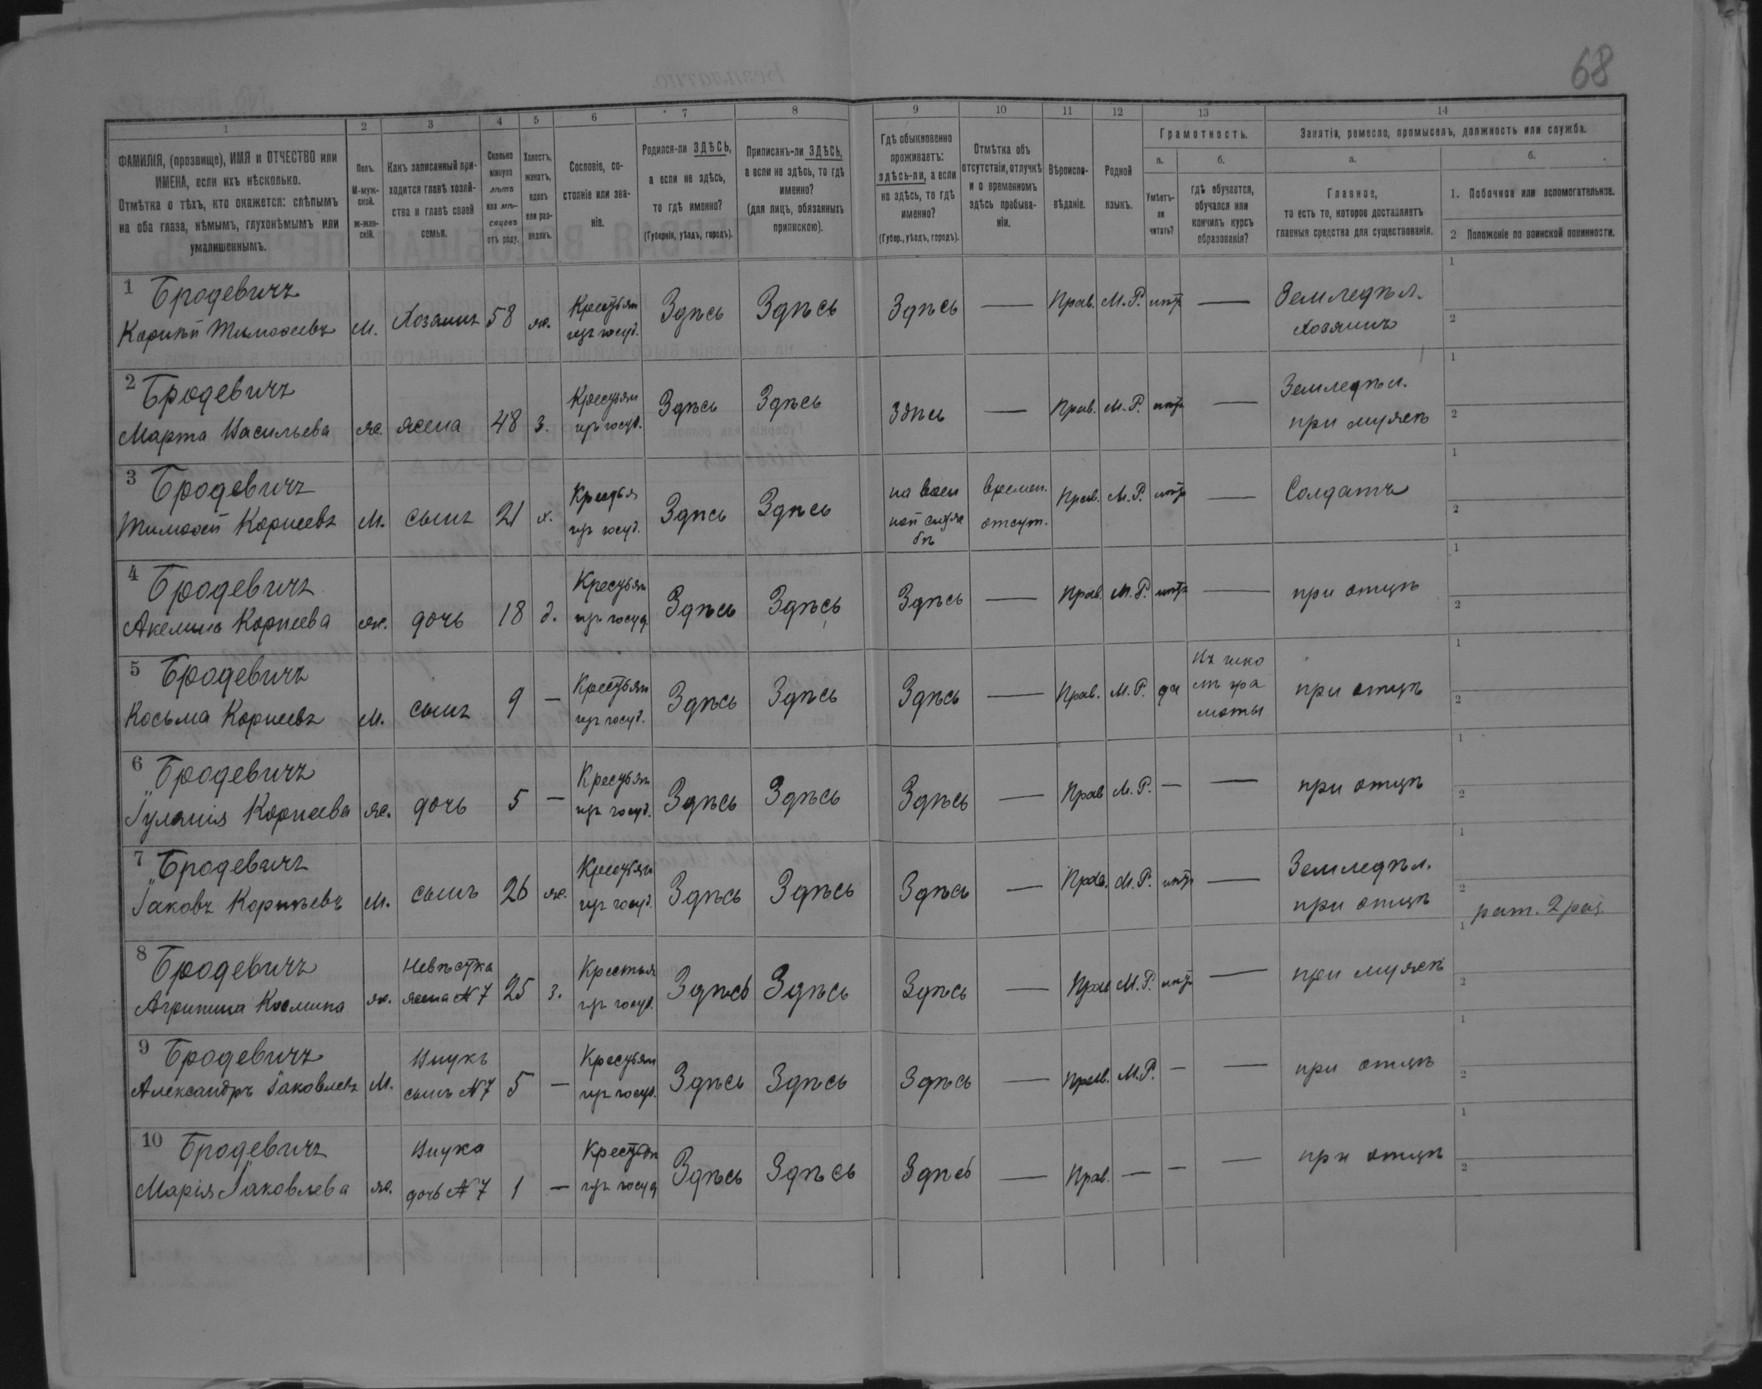 68
1 2 3 4 5 6 7 8 9 10 11 12 13 14
ФАМИЛІЯ, (прозвище), ИМЯ и ОТЧЕСТВО или
ИМЕНА, если ихъ нѣсколько.
Отмѣтка о тѣхъ, кто окажется: слѣпымъ
на оба глаза, нѣмымъ, глухонѣмымъ или
умалишеннымъ.
Полъ.
М-муж-
ской.
ж-жен-
скій.
Какъ записанный при-
ходится главѣ хозяй-
ства и главѣ своей
семьи.
Сколько
минуло
лѣтъ
или мѣ-
сяцевъ
отъ роду.
Холостъ,
женатъ,
вдовъ
или раз-
веденъ.
Сословіе, со-
стояніе или зва-
ніе.
Родился-ли ЗДѢСЬ,
а если не здѣсь,
то гдѣ именно?
(Губернія, уѣздъ, городъ).
Приписанъ-ли ЗДѢСЬ,
а если не здѣсь, то гдѣ
именно?
(для лицъ, обязанныхъ
припискою).
Гдѣ обыкновенно
проживаетъ:
здѣсь-ли, а если
не здѣсь, то гдѣ
именно?
(Губер., уѣздъ, городъ).
Отмѣтка объ
отсутствіи, отлучкѣ
и о временномъ
здѣсь пребыва-
ніи.
Вѣроиспо-
вѣданіе.
Родной
языкъ.
Грамотность.
а.
Умѣетъ-
ли
читать?
б.
гдѣ обучается,
обучался или
кончилъ курсъ
образованія?
Занятія, ремесло, промыселъ, должность или служба.
а.
Главное,
то есть то, которое доставляетъ
главныя средства для существованія.
б.
1. Побочное или вспомогательное.
2 Положеніе по воинской повинности.
1 Бродевичъ
Корнѣй Тимофеевъ м. Хозяинъ 58 ж. Крестьян изъ госуд. Здѣсь Здѣсь Здѣсь — Прав. М.Р. нѣтъ — Земледѣл. хозяинъ
2 Бродевичъ
Марта Васильева ж. жена 48 з. Крестьян изъ госуд. Здѣсь Здѣсь Здѣсь — Прав. М.Р. нѣтъ — Земледѣл. при мужѣ
3 Бродевичъ
Тимофей Корнеевъ м. сынъ 21 х. Крестья изъ госуд. Здѣсь Здѣсь на воен ной служ бѣ времен. отсут. Прав. М.Р. нѣтъ — Солдатъ
4 Бродевичъ
Акелина Корнеева ж. дочь 18 д. Крестьян изъ госуд Здѣсь Здѣсь Здѣсь — Прав М.Р. нѣтъ — при отцѣ
5 Бродевичъ
Косьма Корнеевъ м. сынъ 9 — Крестьян изъ госуд. Здѣсь Здѣсь Здѣсь — Прав. М.Р. да въ шко лѣ гра моты при отцѣ
6 Бродевичъ
Іулянія Корнеева ж. дочь 5 — Крестьян изъ госуд. Здѣсь Здѣсь Здѣсь — Прав М.Р. — — при отцѣ
7 Бродевичъ
Іаковъ Корнѣевъ м. сынъ 26 ж. Крестьян изъ госуд. Здѣсь Здѣсь Здѣсь — Прав. М.Р. нѣтъ — Земледѣл. при отцѣ рат. 2 раз.
8 Бродевичъ
Агрипина Космина ж. Невѣстка жена №7 25 з. Крестья изъ госуд. Здѣсь Здѣсь Здѣсь — Прав М.Р. нѣтъ — при мужѣ
9 Бродевичъ
Александръ Іаковлевъ м. Внукъ сынъ №7 5 — Крестьян изъ госуд. Здѣсь Здѣсь Здѣсь — Прав. М.Р. — — при отцѣ
10 Бродевичъ
Марія Іаковлева ж. Внука дочь №7 1 — Крестьян изъ госуд Здѣсь Здѣсь Здѣсь — Прав. — — — при отцѣ